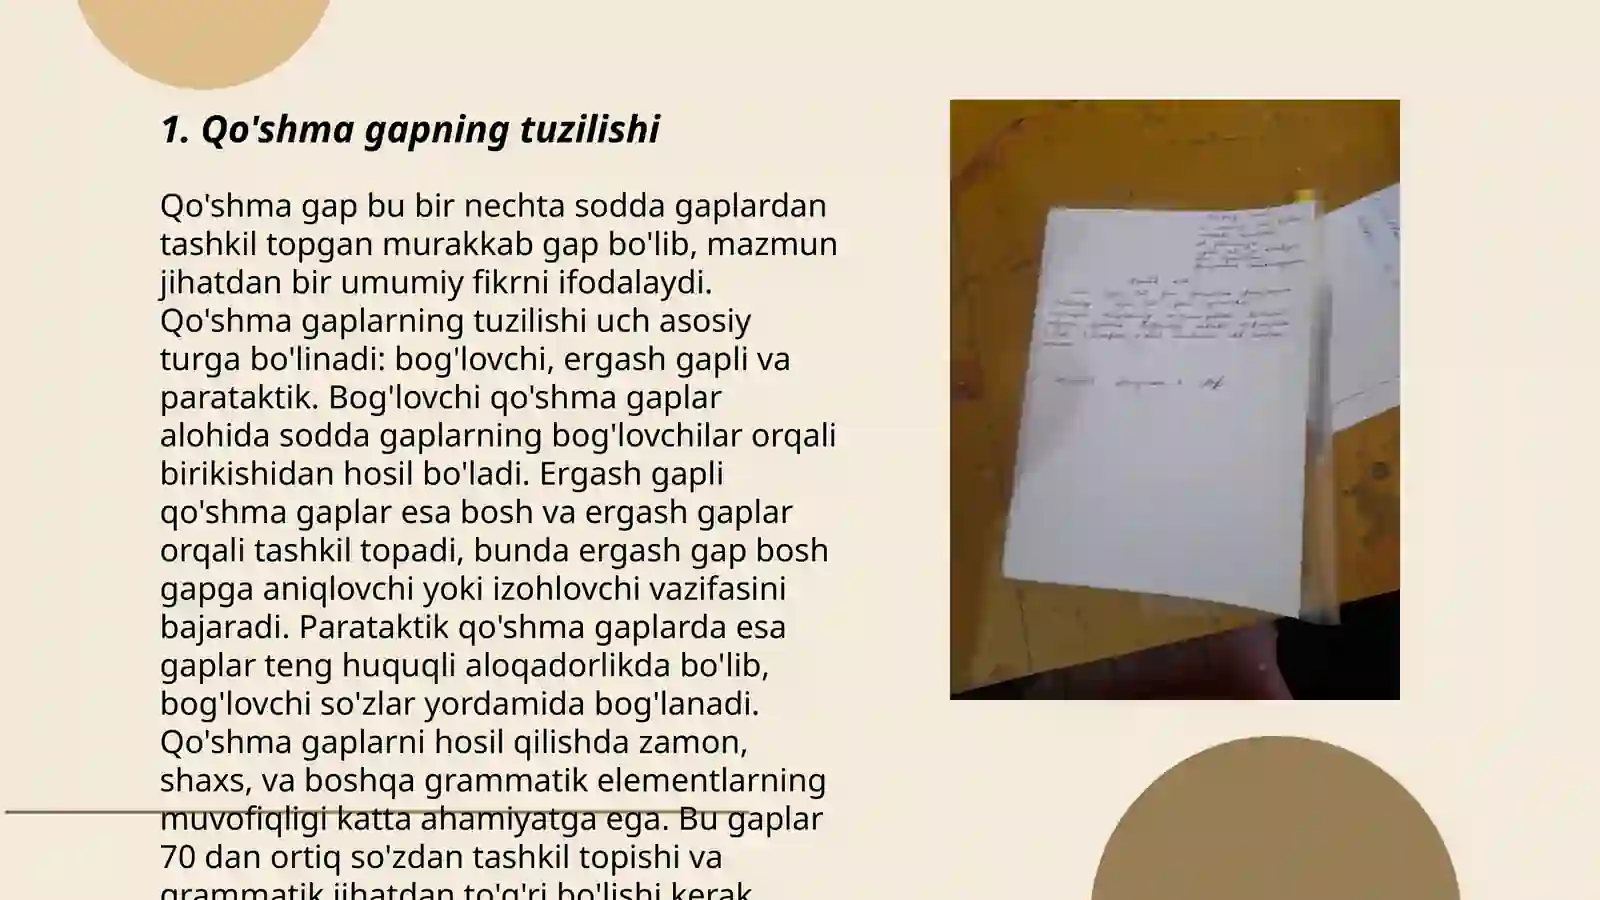 1. Qo'shma gapning tuzilishi
Qo'shma gap bu bir nechta sodda gaplardan
tashkil topgan murakkab gap bo'lib, mazmun
jihatdan bir umumiy fikrni ifodalaydi.
Qo'shma gaplarning tuzilishi uch asosiy
turga bo'linadi: bog'lovchi, ergash gapli va
parataktik. Bog'lovchi qo'shma gaplar
alohida sodda gaplarning bog'lovchilar orqali
birikishidan hosil bo'ladi. Ergash gapli
qo'shma gaplar esa bosh va ergash gaplar
orqali tashkil topadi, bunda ergash gap bosh
gapga aniqlovchi yoki izohlovchi vazifasini
bajaradi. Parataktik qo'shma gaplarda esa
gaplar teng huquqli aloqadorlikda bo'lib,
bog'lovchi so'zlar yordamida bog'lanadi.
Qo'shma gaplarni hosil qilishda zamon,
shaxs, va boshqa grammatik elementlarning
muvofiqligi katta ahamiyatga ega. Bu gaplar
70 dan ortiq so'zdan tashkil topishi va
grammatik jihatdan to'g'ri bo'lishi kerak